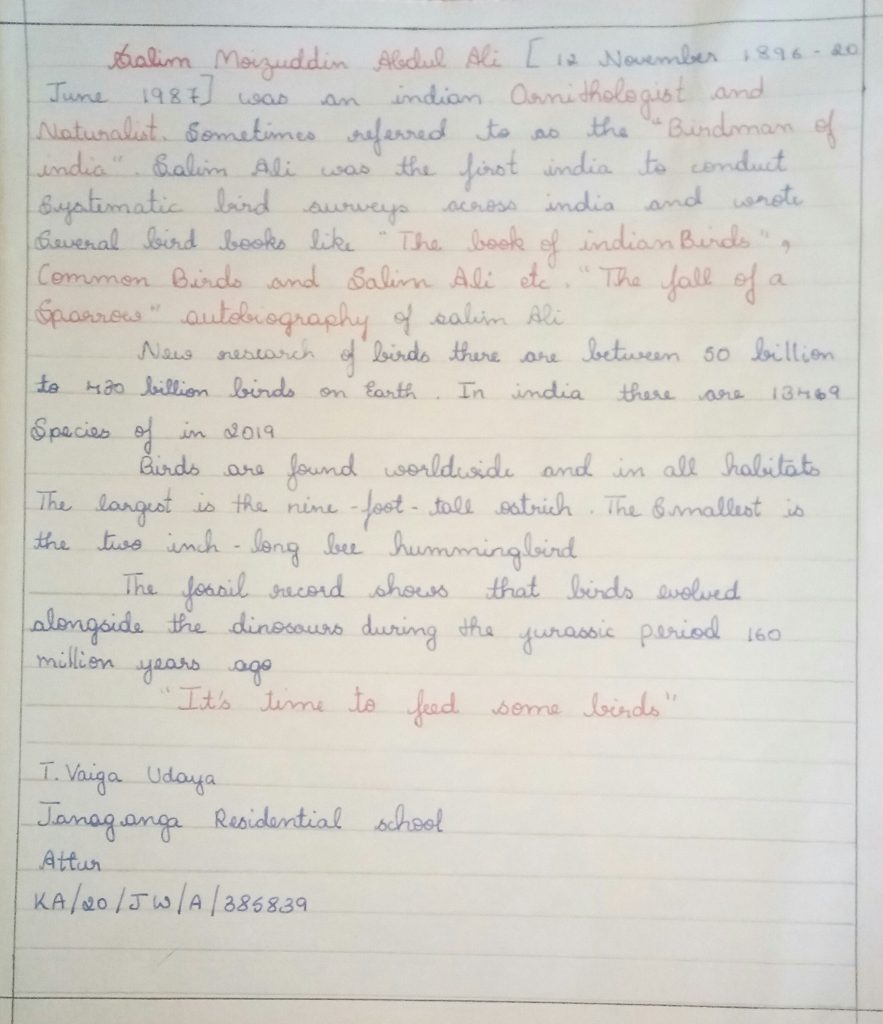 Salim Moizuddin Abdul Ali [ 12 November 1896 - 20
June 1987] was an indian Ornithologist and
Naturalist. Sometimes referred to as the "Birdman of
india". Salim Ali was the first india to conduct
Systematic bird surveys across india and wrote
Several bird books like "The book of indian Birds",
Common Birds and Salim Ali etc. "The fall of a
Sparrow" autobiography of salim Ali
New research of birds there are between 50 billion
to 430 billion birds on Earth. In india there are
Species of in 2019
Birds are found worldwide and in all habitats
The largest is the nine-foot-tall ostrich. The Smallest is
the two inch-long bee hummingbird
The fossil record shows that birds evolved
alongside the dinosaurs during the jurassic period 160
million years ago
"It's time to feed some birds"
T. Vaiga Udaya
Janaganga Residential school
Attur
KA/20/JW/A/385839